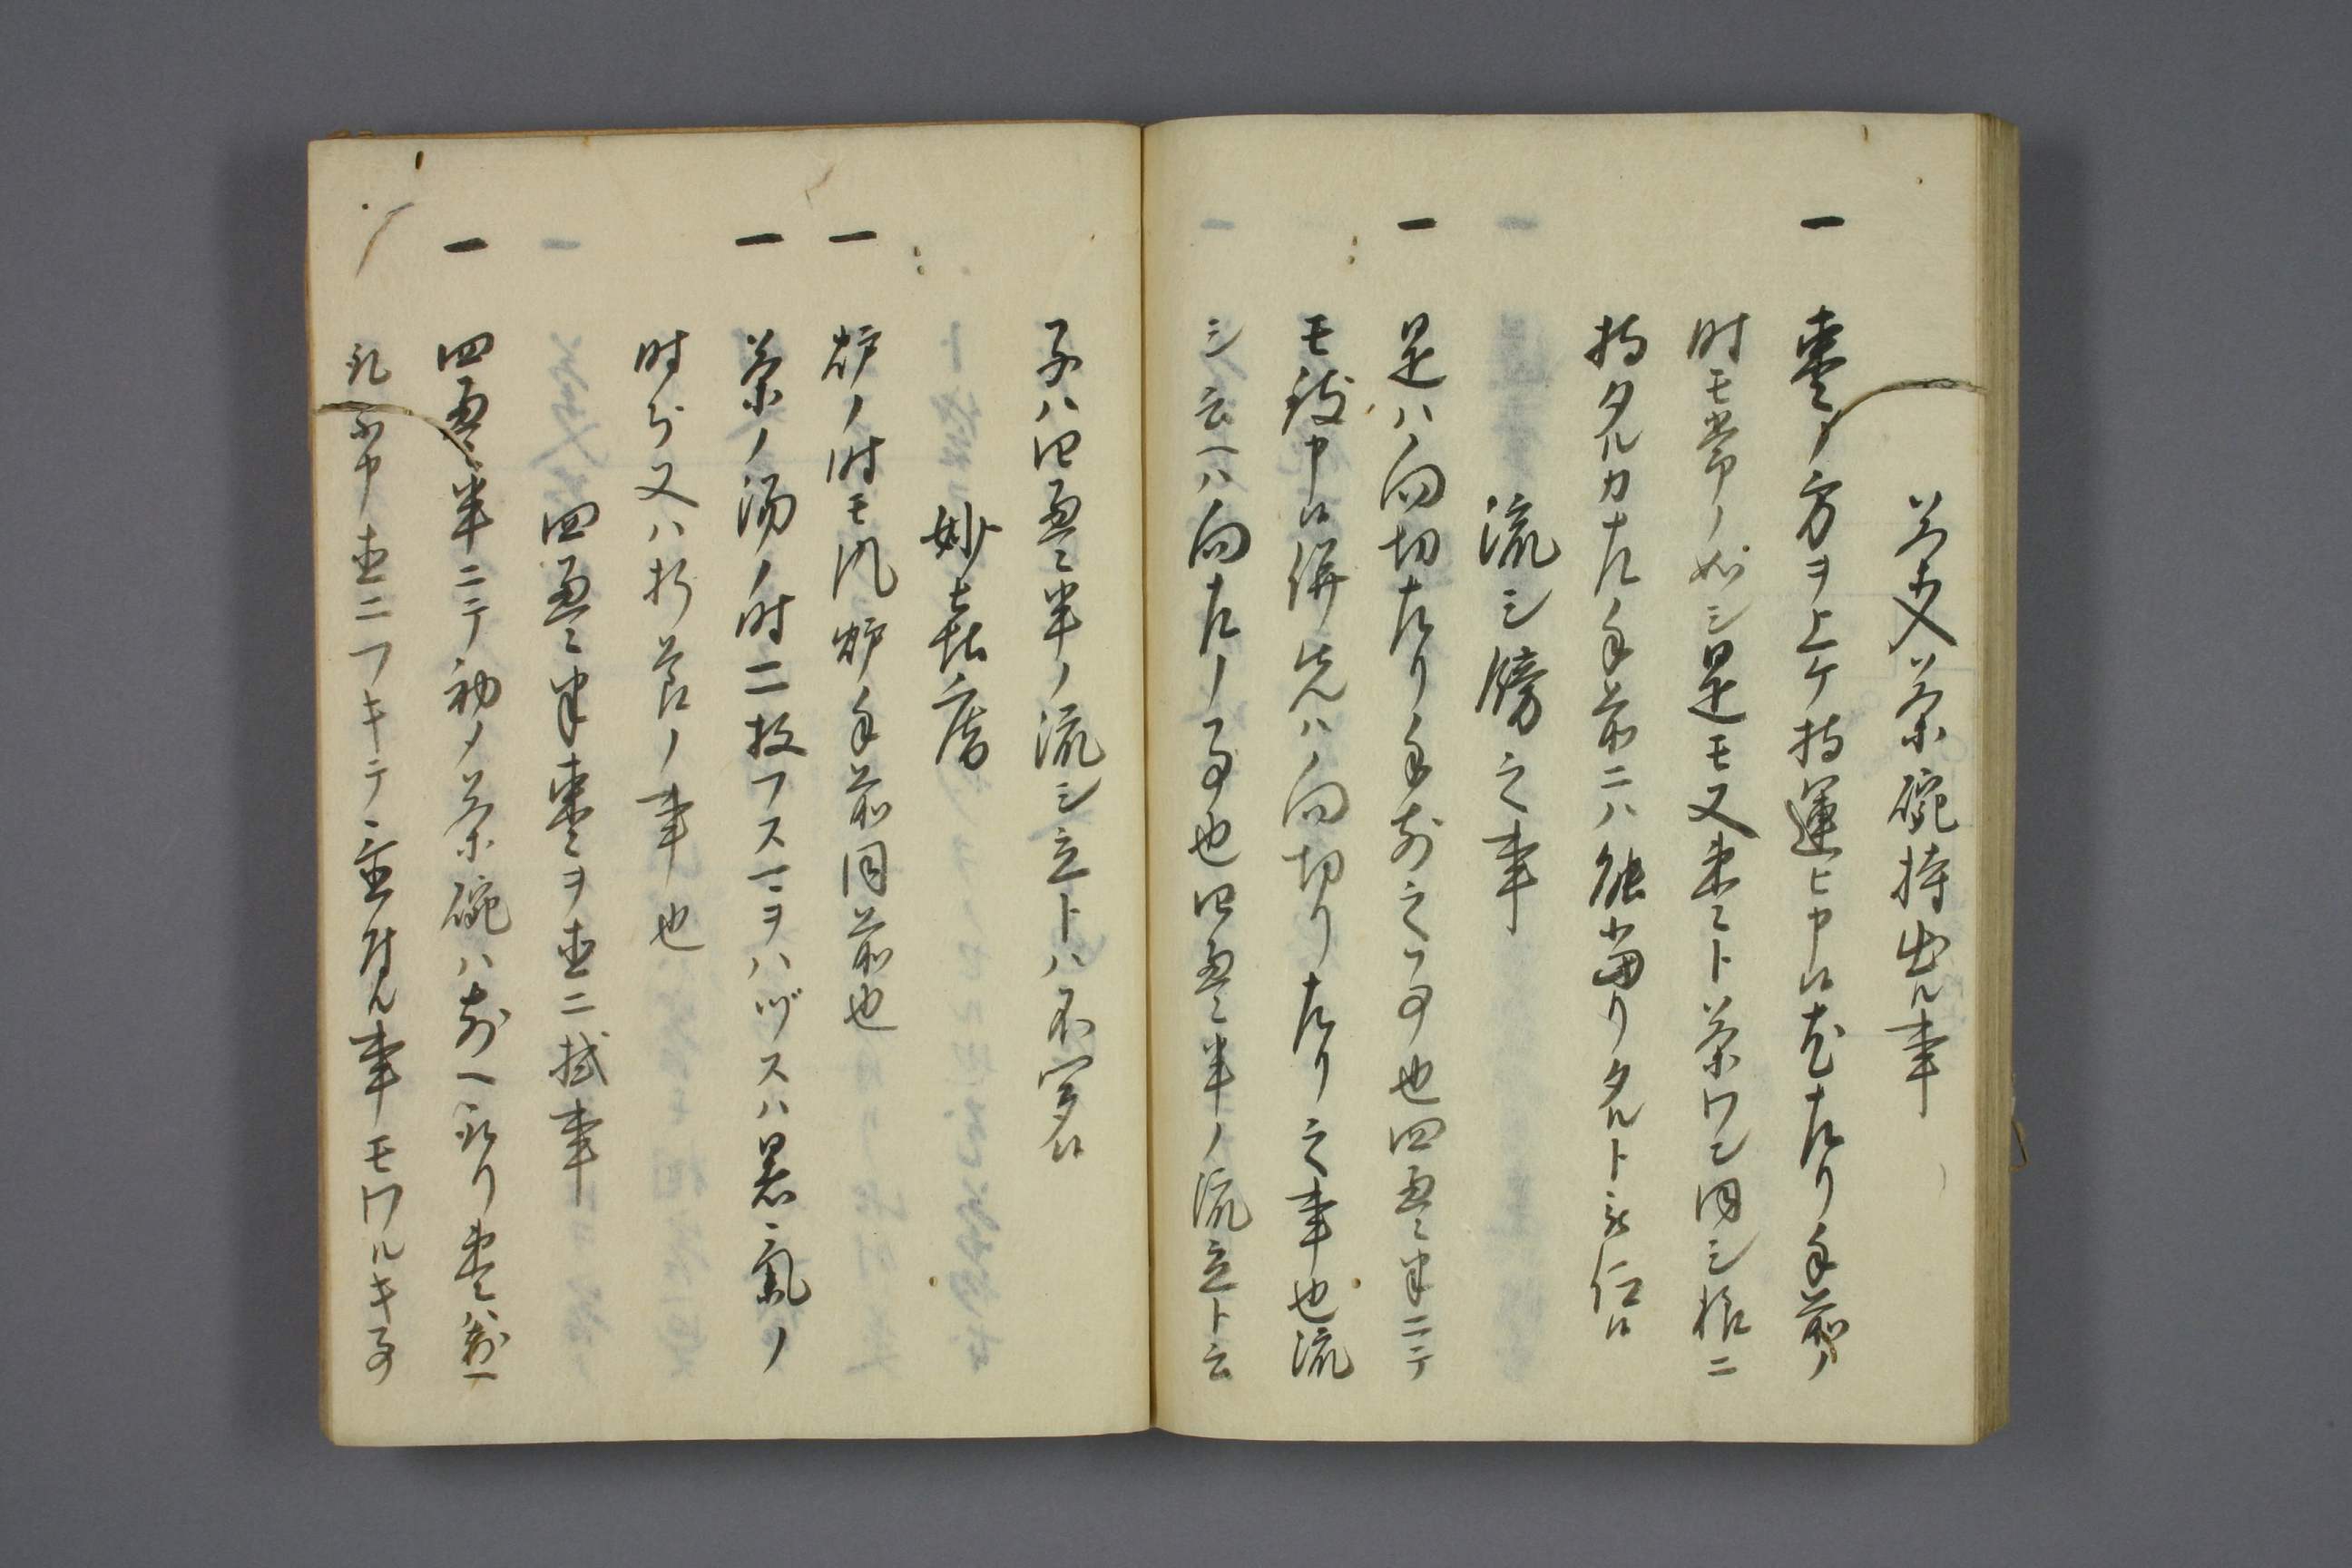 茶入茶碗持出ル事
一棗ノ方ヲ上ケ持運ヒ申候尤左リ手前ノ
時モ常ノ如シ是モ又棗ト茶ワン同シ様ニ
持タルカ左手前ニハ能当リタルト被仰候
流シ勝手之事
一是ハ向切左リ手前之事也四畳半ニテ
モ致申候併先ハ向切リ左リ之事也流
シ云ヘハ向左ノ事也四畳半ノ流立ト云
事ハ四畳半ノ流シ立トハ不定候
妙喜庵
一炉ノ時モ風炉手前同前也
一茶ノ湯ノ時二枚フスマヲハヅスハ暑気ノ
時分又ハ折節ノ事也
四畳半棗ヲ直ニ拭事
一四畳半ニテ初ノ茶碗ハ前ヘ取リ棗ハ前ヘ
取不申直ニフキテ置付ル事モワルキ事